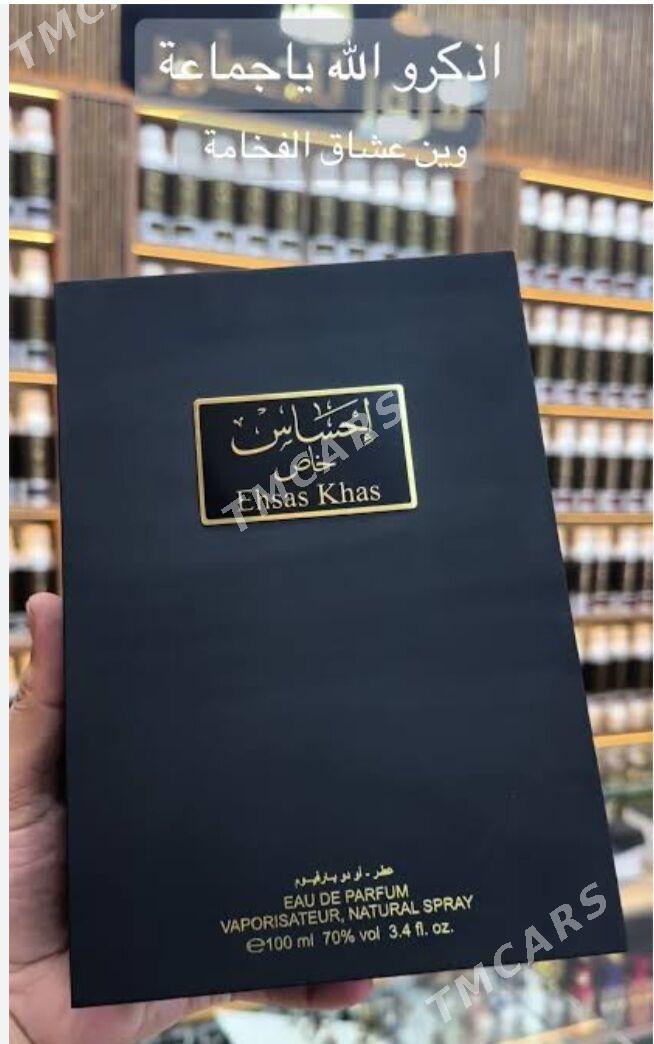 TMCARS
اذكرو الله ياجماعة
وين عشاق الفخامة
إحساس
خاص
Ehsas Khas
TMCARS
عطر - أو دو بارفيوم
EAU DE PARFUM
VAPORISATEUR, NATURAL SPRAY
℮100 ml 70% vol 3.4 fl. oz.
TMCARS